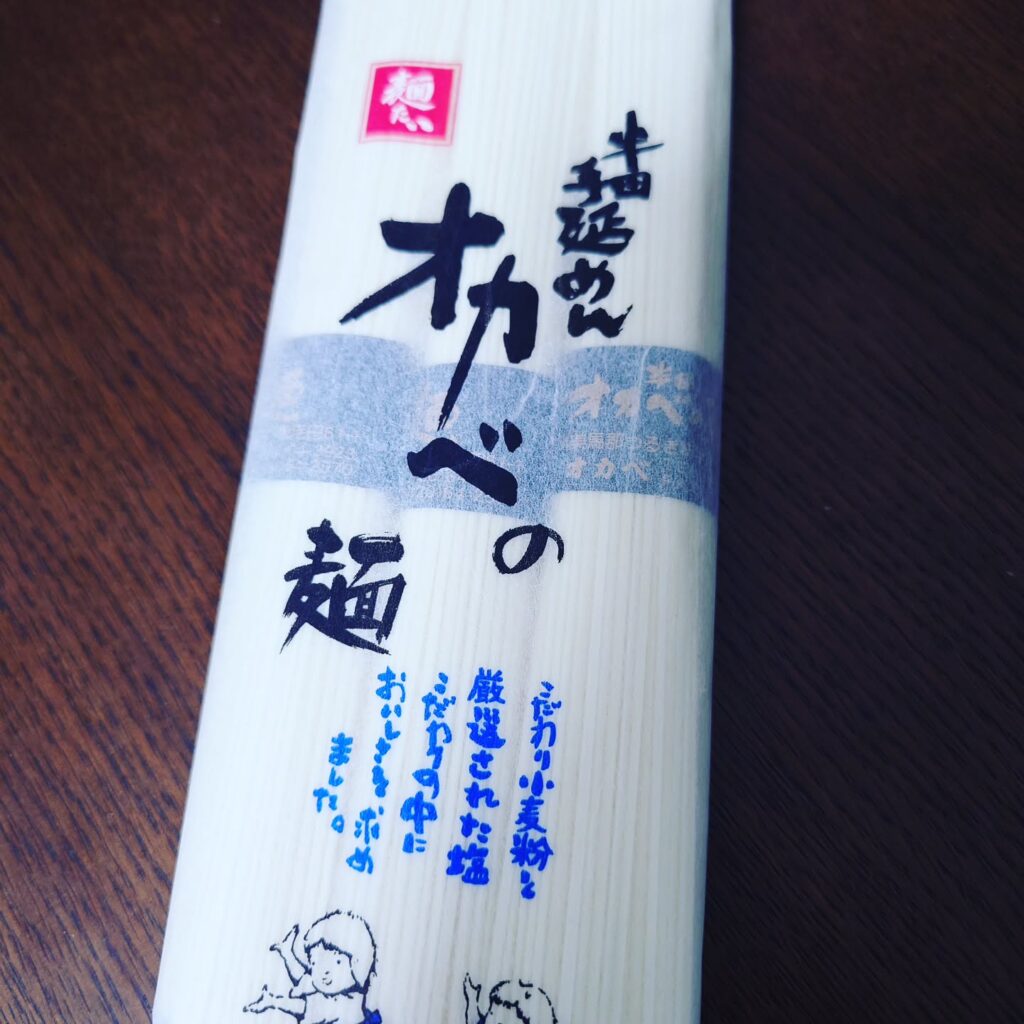 麺たい
半田
手延めん
オカベの
麺
こだわり小麦粉と
厳選された塩
こだわりの中に
おいしさを求め
ました。
半田
オカベ
オカベ